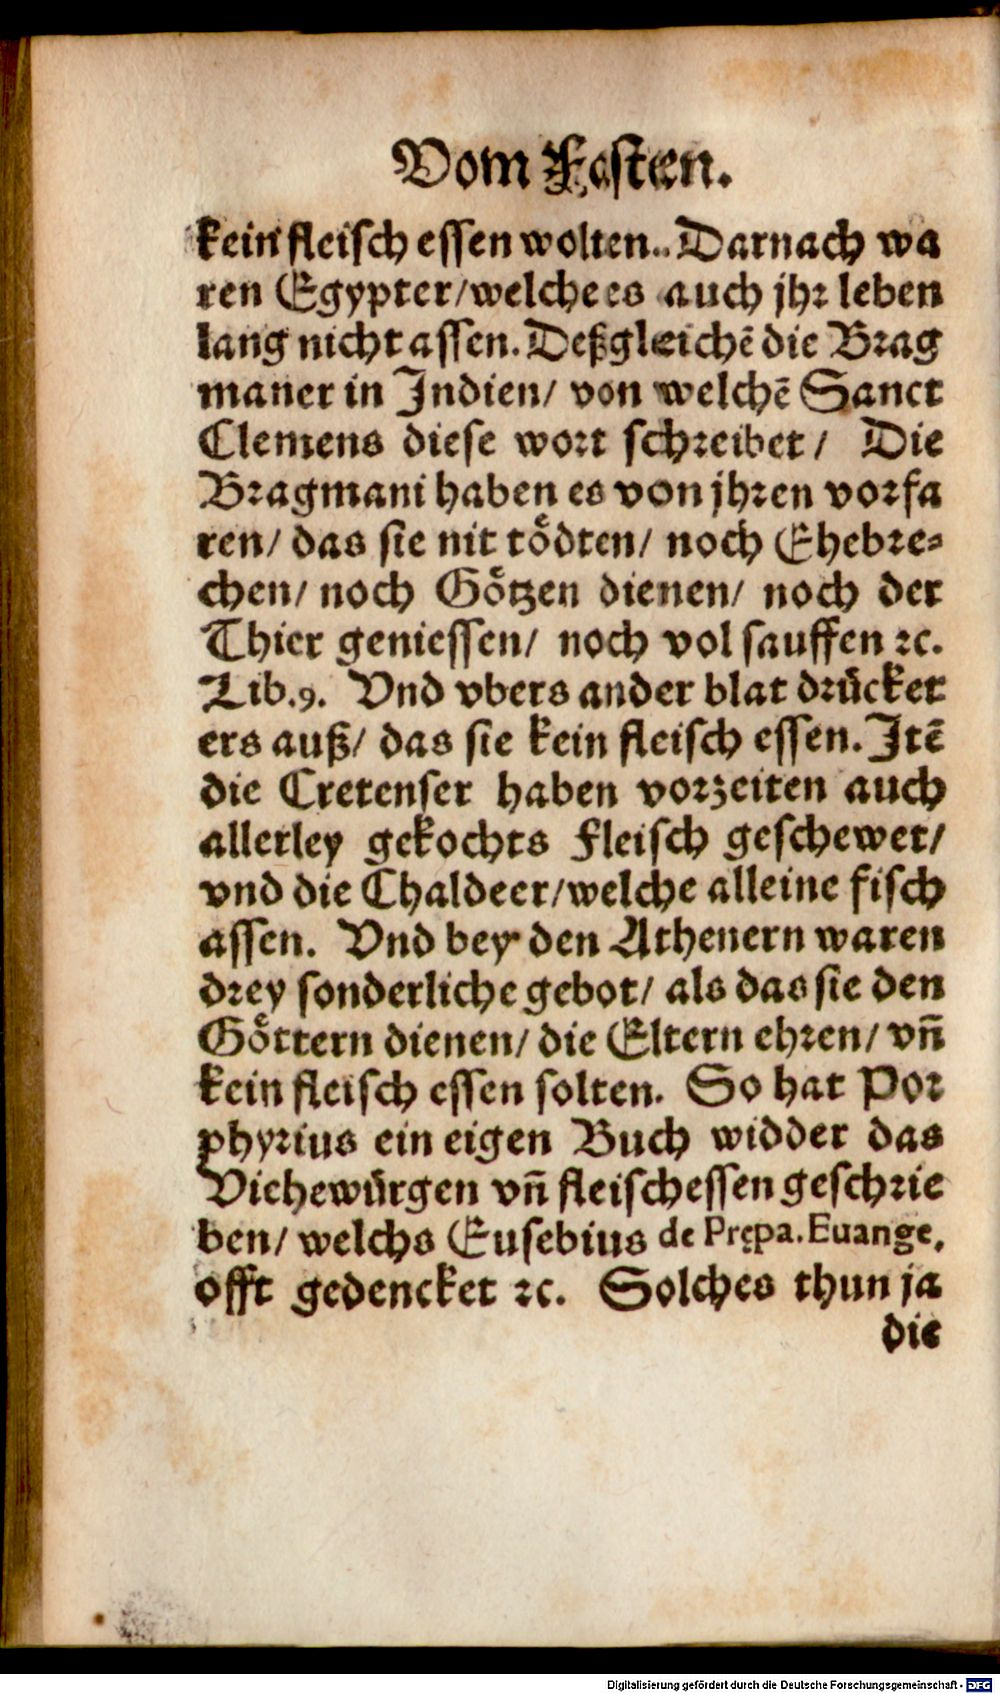 Vom Fasten.
kein fleisch essen wolten.. Darnach wa
ren Egypter/welche es auch jhr leben
lang nicht assen. Deßgleichē die Brag
maner in Indien/ von welchē Sanct
Clemens diese wort schreibet/ Die
Bragmani haben es von jhren vorfa
ren/ das sie nit tödten/ noch Ehebre-
chen/ noch Götzen dienen/ noch der
Thier geniessen/ noch vol sauffen ꝛc.
Lib.9. Vnd vbers ander blat drücket
ers auß/ das sie kein fleisch essen. Itē
die Cretenser haben vorzeiten auch
allerley gekochts Fleisch geschewet/
vnd die Chaldeer/welche alleine fisch
assen. Vnd bey den Athenern waren
drey sonderliche gebot/ als das sie den
Göttern dienen/ die Eltern ehren/ vñ
kein fleisch essen solten. So hat Por
phyrius ein eigen Buch widder das
Viehewürgen vñ fleischessen geschrie
ben/ welchs Eusebius de Prępa. Euange.
offt gedencket ꝛc. Solches thun ja
die
Digitalisierung gefördert durch die Deutsche Forschungsgemeinschaft - DFG